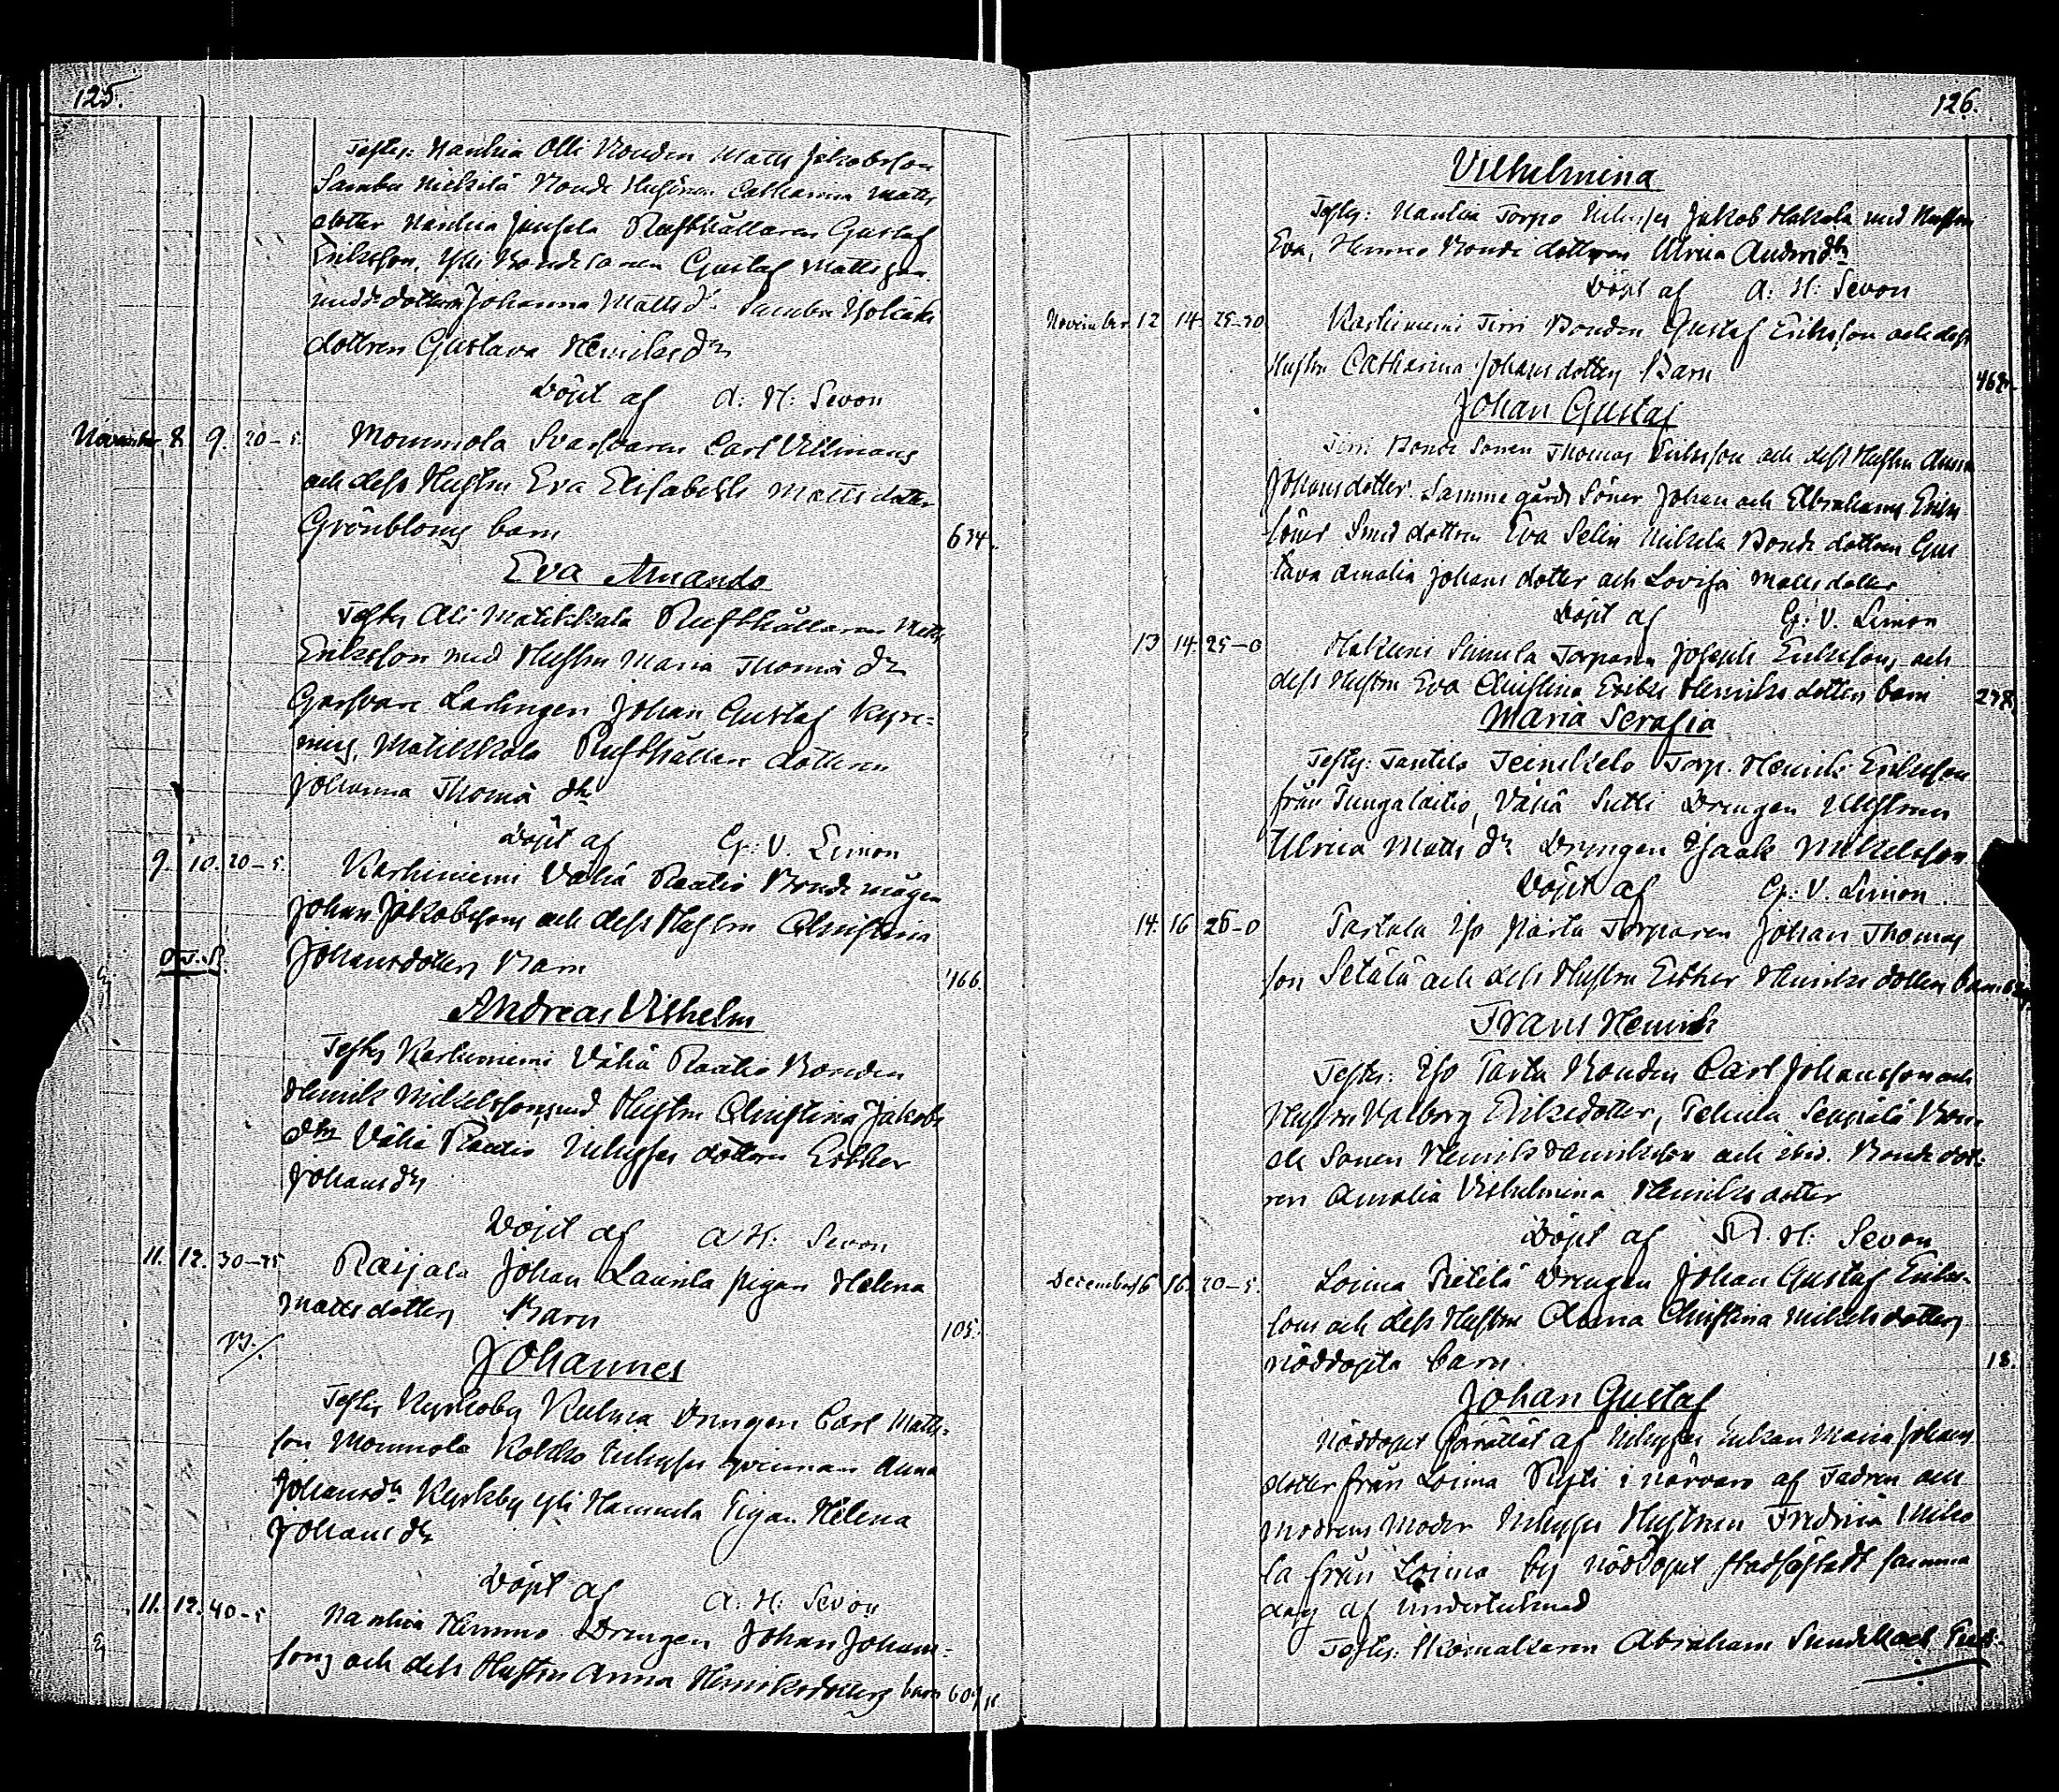 125.
Testes: Nauhia Olli Bonden Matts Jakobsson
Sambu Nickilä Bonde Hustrun Catharina Matts
dotter Nauhia Jaussala Rusthållaren Gustaf
Eriksson, Yli Bondesonen Gustaf Mattsson
med dottren Johanna Matts dr. Sambu
dottren Gustava Henriks dr
Döpt af A: H: Sevon
November 8. 9. 20-5. Mommola Svarfvaren Carl Ullmans
och dess Hustru Eva Elisabeth Matts dotter
Grönbloms barn 634.
Eva Amanda
Testes Ali Matikkala Rusthållaren Matts
Eriksson med Hustru Maria Thomæ dr
Garfvare Lärlingen Johan Gustaf Kyre-
nius, Matikkala Rusthållare dottren
Johanna Thomæ dr
Döpt af G: V. Limon
9. 10. 20-5. Karhiniemi Vähä Raatio Bonde mågen
Johan Jakobssons och dess Hustru Christina
Johansdotters Barn 466.
Andreas Vilhelm
Testes Karhiniemi Vähä Raatio Bonden
Henrik Mikelsson med Hustru Christina Jakobs
dtr Vähä Raatio Inhyses dottren Esther
Johans dr
Döpt af A H: Sevon
11. 12. 30-25 Raijala Johan Laurila pigan Helena
Matts dotters Barn 105.
Johannes
Testes Kyrkoby Kulma Drengen Carl Matts-
son Mommola Kolkko Inhyses qvinnan Anna
Johansdr Kyrkby Yli Hannula Pigan Helena
Johans dr
Döpt af A: H: Sevon
11. 12. 40-5 Nauhia Himmo Drengen Johan Johans-
sons och dess Hustru Anna Henriksdotters barn 609
126.
Vilhelmina
Testes: Nauhia Torpo Inhyses Jakob Hakala med Hustru
Eva, Himmo Bonde dottren Ulrica Andersdr
Döpt af A: H: Sevon
November 12 14. 25-30 Karhiniemi Tirri Bonden Gustaf Eriksson och dess
Hustru Catharina Johansdotters Barn 468.
Johan Gustaf
Tirri Bonde Sonen Thomas Eriksson och dess Hustru Anna
Johansdotter. Samma gårds Söner Johan och Abraham Eriks
söner Smed dottren Eva Selin Mikola Bonde dottren Gus
tava Amalia Johans dotter och Lovisa Matts dotter
Döpt af G: V. Limon
13 14. 25-0 Hakuni Simula Torparen Joseph Erikssons och
dess Hustru Eva Christina Henriks dotters barn 278.
Maria Serafia
Testes: Torp. Henrik Eriksson
från Pungalaitio, Vähä Sutti Drengen Hustrun
Ulrica Matts dr Drengen Isaak Mikelsson.
Döpt af G: V. Limon.
14. 16 25-0 Torparen Johan Thomas
son Setälä och dess Hustru Esther Henriks dotters barn
Frans Henrik
Testes: Iso Bonden Carl Johansson och
Hustru Valborg Eriksdotter, Seppälä Bon-
de Sonen Henrik Henriksson och ibid. Bonde dott-
ren Amalia Vilhelmina Henriks dotter
Döpt af A. H: Sevon
December 16 16. 20-5. Loima Pietilä Drengen Johan Gustaf Eriks-
sons och dess Hustru Anna Christina Mikels dotters
nöddöpta barn. 18.
Johan Gustaf
Nöddopet förrättat af Inhyses Enkan Maria Johans
dotter från Loima i närvaro af Fadren och
modrens Moder Inhyses Hustrun Fredrica Miko
la från Loima by nöddopet stadfästadt samma
dag af undertecknad
Testes: Skomakaren Abraham Sundell och